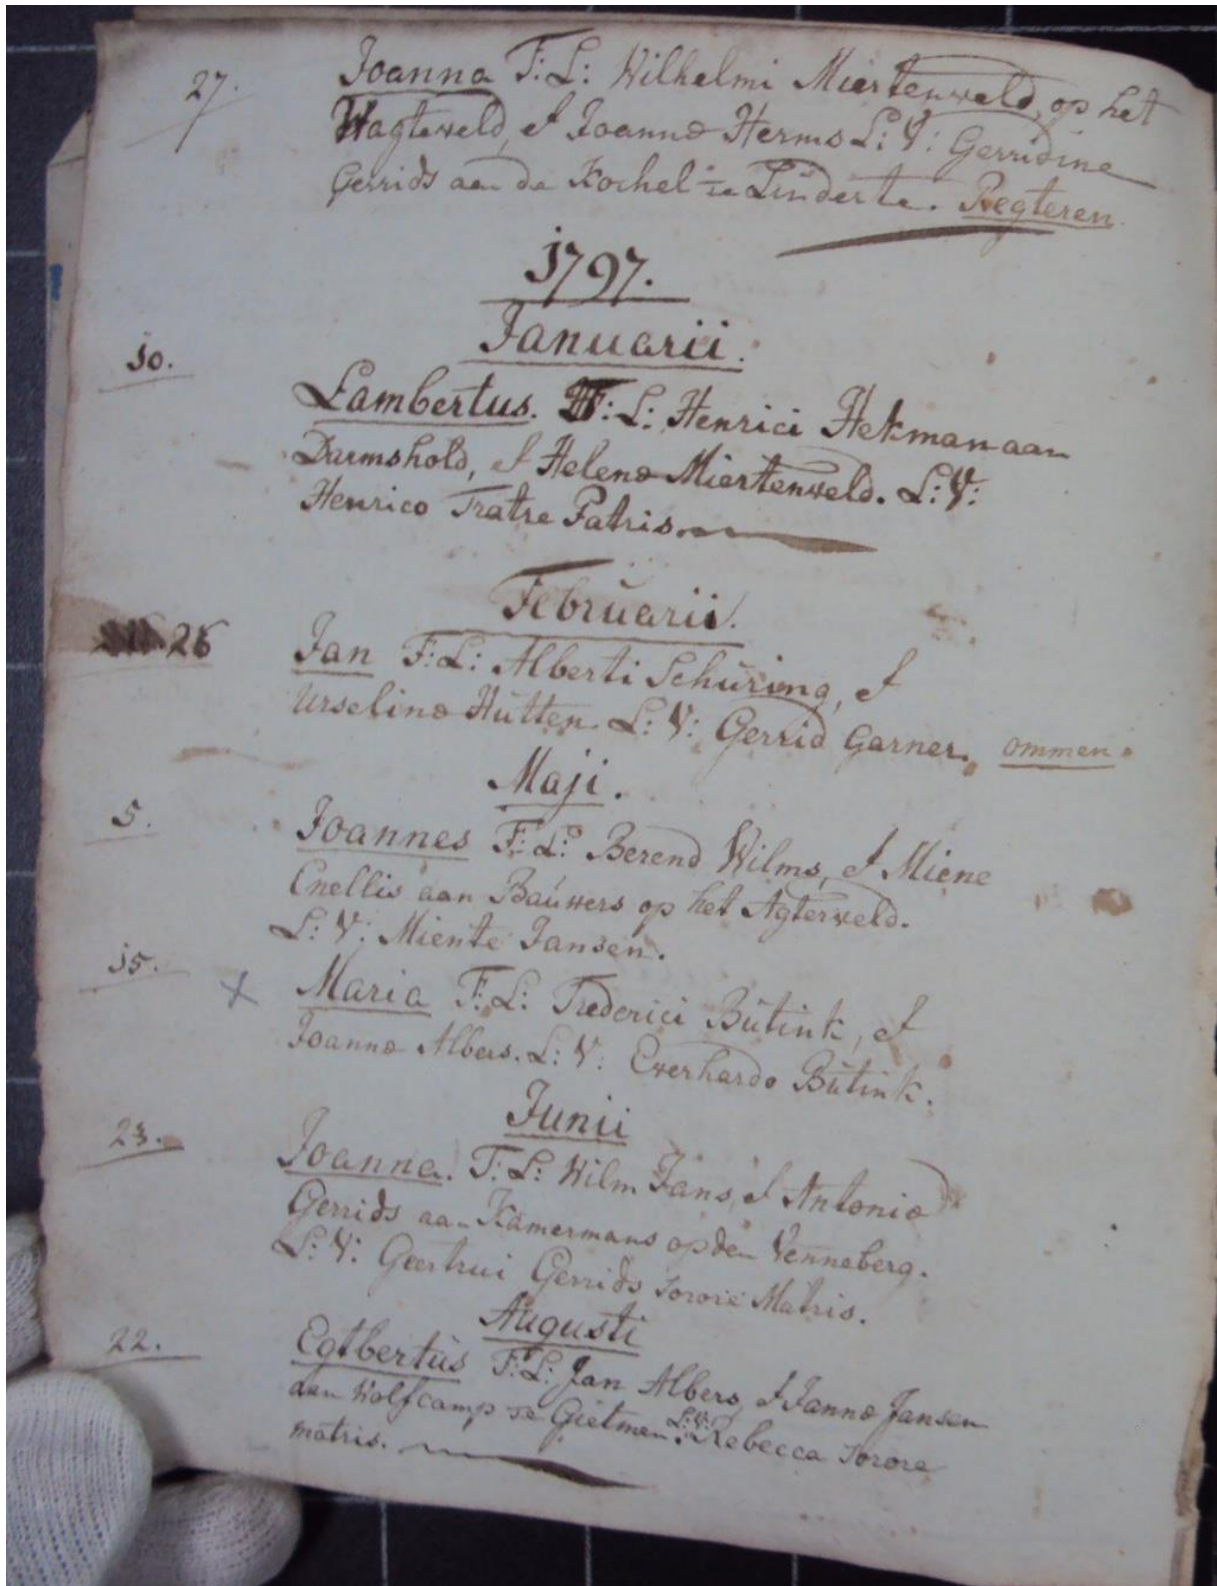 27. Joanna F: L: Wilhelmi Miertenweld, op het
Wagteveld, et Joannæ Herms L: V: Gerridine
Gerrids aan de Kochel te Linderte. Regteren
1797.
Januarii.
10. Lambertus. F: L: Henrici Hekman aan
Darmshold, et Helenæ Miertenweld. L: V:
Henrico Fratre Patris.
Februarii.
26 Jan F: L: Alberti Schüring, et
Urselinæ Hütten. L: V: Gerrid Garner. ommen.
Maji.
5. Joannes F: L: Berend Wilms, et Miene
Cnellis aan Baúwers op het Agterveld.
L: V: Miente Jansen.
15. x Maria F: L: Frederici Bütink, et
Joannæ Albers. L: V: Everhardo Bütink.
Junii
23. Joanna. F: L: Wilm Jans, et Antoniæ
Gerrids aan Kamermans op den Venneberg.
L: V: Geertrui Gerrids sorore Matris.
Augusti
22. Egtbertús F: L: Jan Albers, et Jannæ Jansen
aan Wolfcamp te Gietmen. L: V: Rebecca sorore
matris.